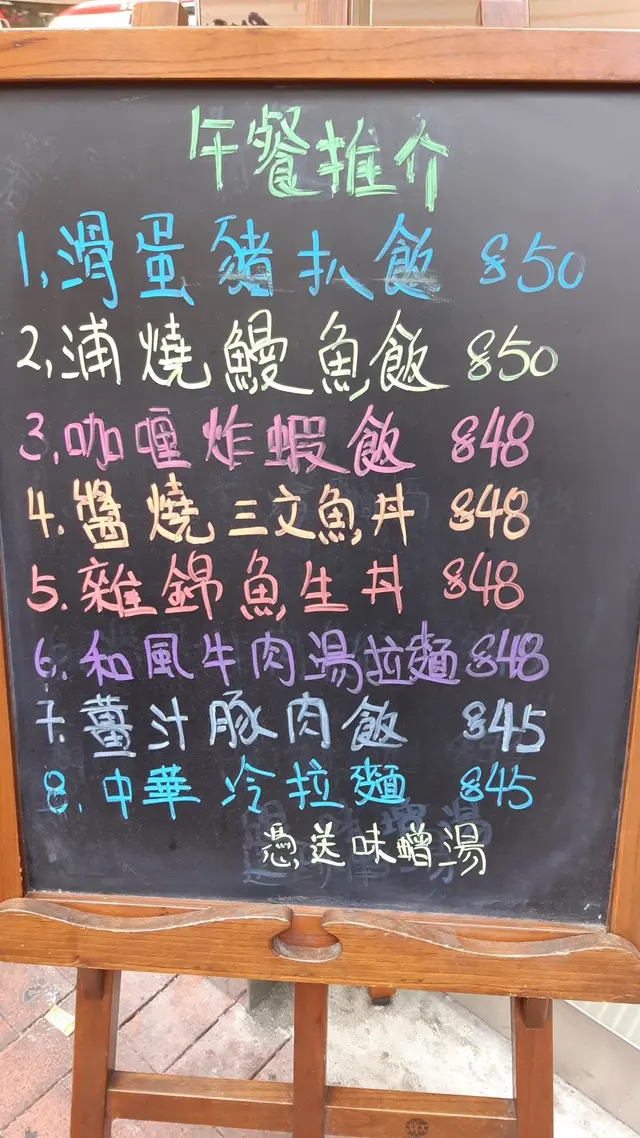 午餐推介
1,滑蛋豬扒飯 $50
2,浦燒鰻魚飯 $50
3.咖喱炸蝦飯 $48
4.醬燒三文魚丼 $48
5.雜錦魚生丼 $48
6.和風牛肉湯拉麵 $48
7.薑汁豚肉飯 $45
8.中華冷拉麵 $45
送味噌湯